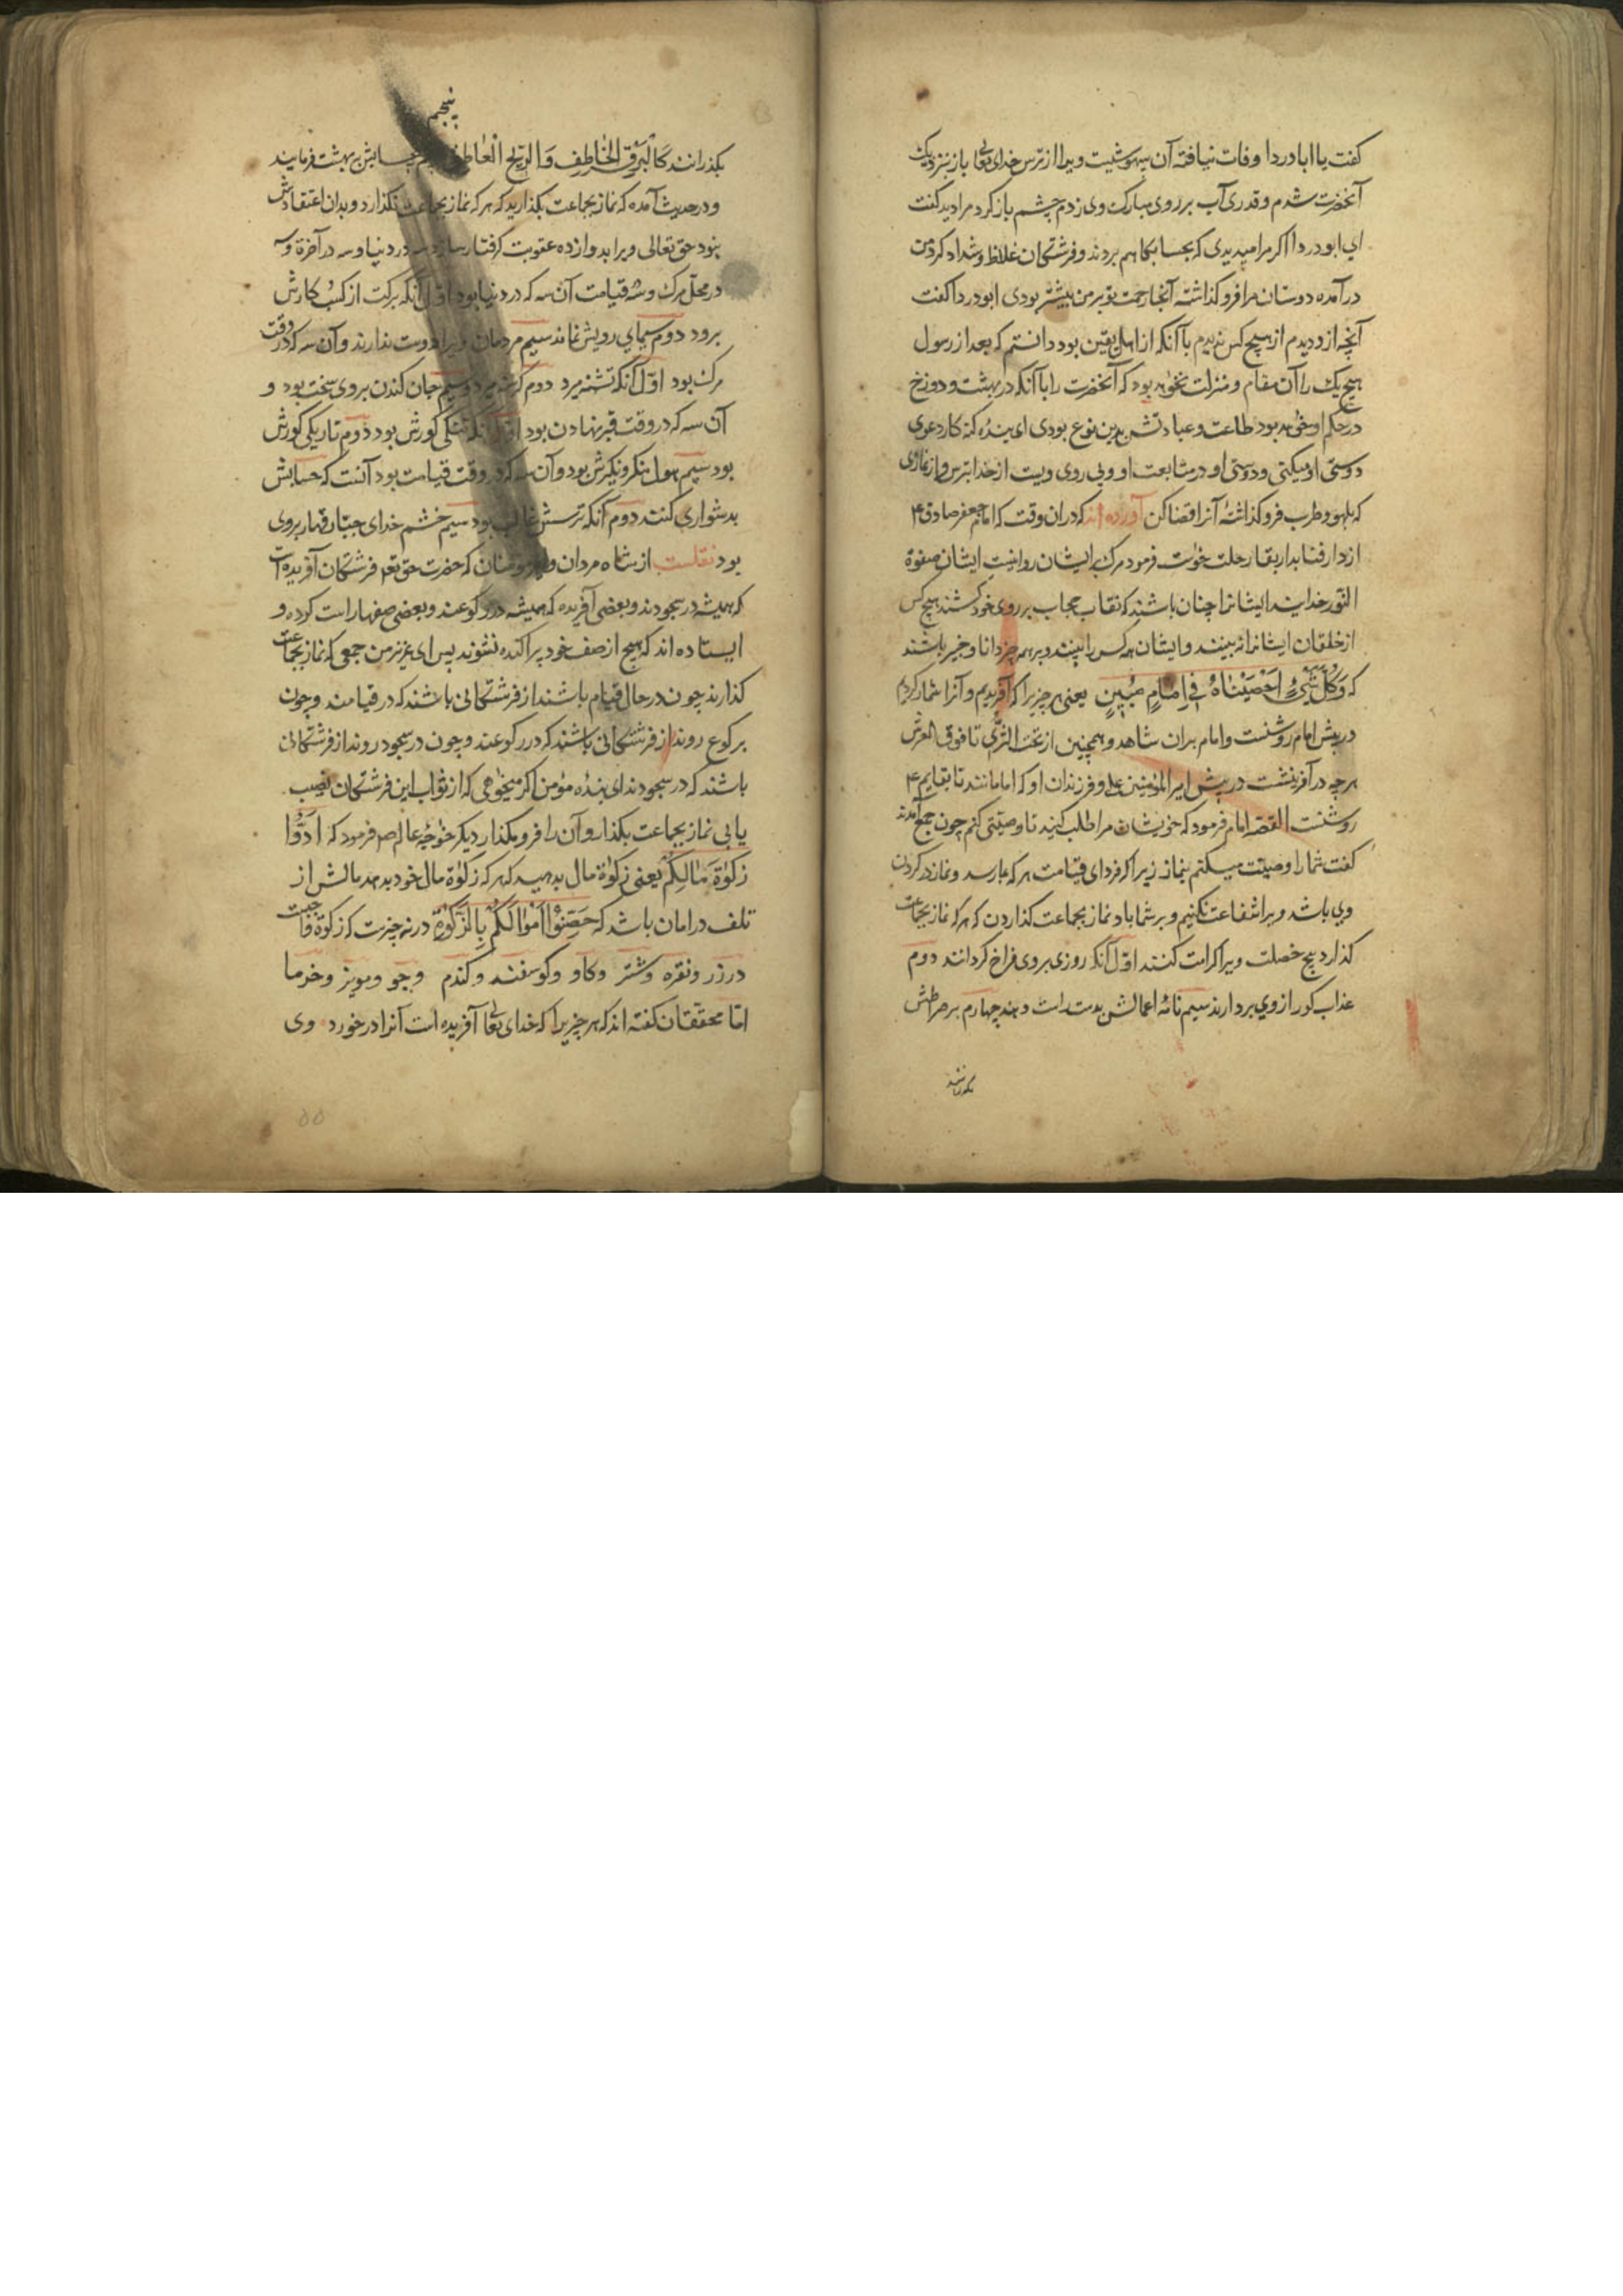 گفت یا ابا دردا وفات نیافته آن بیهوشیست ویرا از ترس خدای تعا باز بنزدیک
آنحضرت شدم و قدری آب بر روی مبارک وی زدم چشم باز کرد مرا دید گفت
ای ابودردا اگر مرا میدیدی که بحسابکاهم بردند و فرشتکان غلاظ و شداد کرد من
در آمده دوستان مرا فرو کذاشته آنجا رحمت تو بر من بیشتر بودی ابودردا گفت
آنچه ازو دیدم از هیچ کس ندیدم با آنکه از اهل یقین بود دانستم که بعد از رسول
هیچ یک را آن مقام و منزلت نخواهد بود که آنحضرت را با آنکه در بهشت و دوزخ
در حکم او خواهد بود طاعت و عبادتش بدین نوع بودی ای بنده کنه کار دعوی
دوستی او میکنی و دوستی او در متابعت او و پی روی ویست از خدا بترس و از نمازی
که بلهو و طرب فرو کذاشتهٔ آنرا قضا کن آورده اند که دران وقت که امام جعفر صادق ۴
از دار فنا بدار بقا رحلت خواست فرمود مرک بر ایشان روا نیست ایشان صفوة
النور خدایند ایشانرا چنان باشند که نقاب حجاب بر روی خود کشند هیچ کس
از خلقان ایشانرا نه بیند و ایشان همه کس را بینند و بر همه چیز دانا و خبیر باشند
که وَکُلَّ شَیْءٍ اَحْصَیْنَاهُ فِی اِمَامٍ مُبِینٍ یعنی هر چیزیرا که آفریدیم و آنرا شمار کردیم
در پیش امام روشنست و امام بران شاهد و همچنین از تحت الثری تا فوق العرش
هر چه در آفرینشت در پیش امیر المؤمنین علی و فرزندان او که امامانند تا بقایم ۴
روشنست القصه امام فرمود که خویشان مرا طلب کنید تا وصیتی کنم چون جمع آمدند
گفت شما را وصیت میکنم بنماز زیرا که فردای قیامت هر که بما رسد و نماز در کردن
وی باشد ویرا شفاعت نکنیم و بر شما باد نماز بجماعت کذاردن که هر که نماز بجماعت
کذارد پنج خصلت ویرا کرامت کنند اوّل آنکه روزی بروی فراخ کردانند دوم
عذاب کور از وی بردارند سیم نامهٔ اعمالش بدست راست دهند چهارم بر صراطش
بکذرانند
پنجم
بکذرانند کَالْبَرْقِ الخَاطِفِ وَ الرّیْحِ الْعَاصِفِ حسابش بهشت فرمایند
و در حدیث آمده که نماز بجماعت بکذارید که هر که نماز بجماعت نکذارد و بدان اعتقادش
نبود حق تعالی ویرا بدوازده عقوبت کرفتار سازد سه در دنیا و سه در آخرة و سه
در محل مرک و سه قیامت آن سه که در دنیا بود اوّل آنکه برکت از کسب کارش
برود دوم سیمای رویش نماند سیم مردمان ویرا دوست ندارند و آن سه که در وقت
مرک بود اوّل آنکه تشنه میرد دوم کرسنه میرد و سیم جان کندن بروی سخت بود و
آن سه که در وقت قبر نهادن بود اوّل آنکه تنکی کورش بود دوم تاریکی کورش
بود سیم هول منکر و نکیرش بود و آن سه که در وقت قیامت بود آنست که حسابش
بدشواری کنند دوم آنکه ترسش غالب بود سیم خشم خدای جبّار قهار بروی
بود نقلست از شاه مردان و امیر مؤمنان که حضرت حق تعه فرشتکان آفریده است
که همیشه در سجودند و بعضی آفریده که همیشه در رکوعند و بعضی صفها راست کرده و
ایستاده اند که هیچ از صف خود پراکنده نشوند پس ای عزیز من جمعی که نماز بجماعت
کذارند چون در حال قیام باشند از فرشتکانی باشند که در قیامند و چون
برکوع روند از فرشتکانی باشند که در رکوعند و چون در سجود روند از فرشتکانی
باشند که در سجودند ای بندهٔ مؤمن اکر میخواهی که از ثواب این فرشتکان نصیب
یابی نماز بجماعت بکذار و آن را فرو مکذار دیکر خواجهٔ عالم صم فرمود که اَدُّوا
زَکوٰةَ مَالِکُمْ یعنی زکوٰة مال بدهید که هر که زکوٰة مال خود بدهد مالش از
تلف در امان باشد که حَصِّنُوْا اَمْوَالَکُمْ بِالزَّکٰوةِ در نه چیزست که زکوة واجبست
در زر و نقره و شتر و کاو و کوسفند و کندم و جو و مویز و خرما
امّا محققان گفته اند که هر چیزیرا که خدای تعا آفریده است آنرا در خورد وی
۵۵